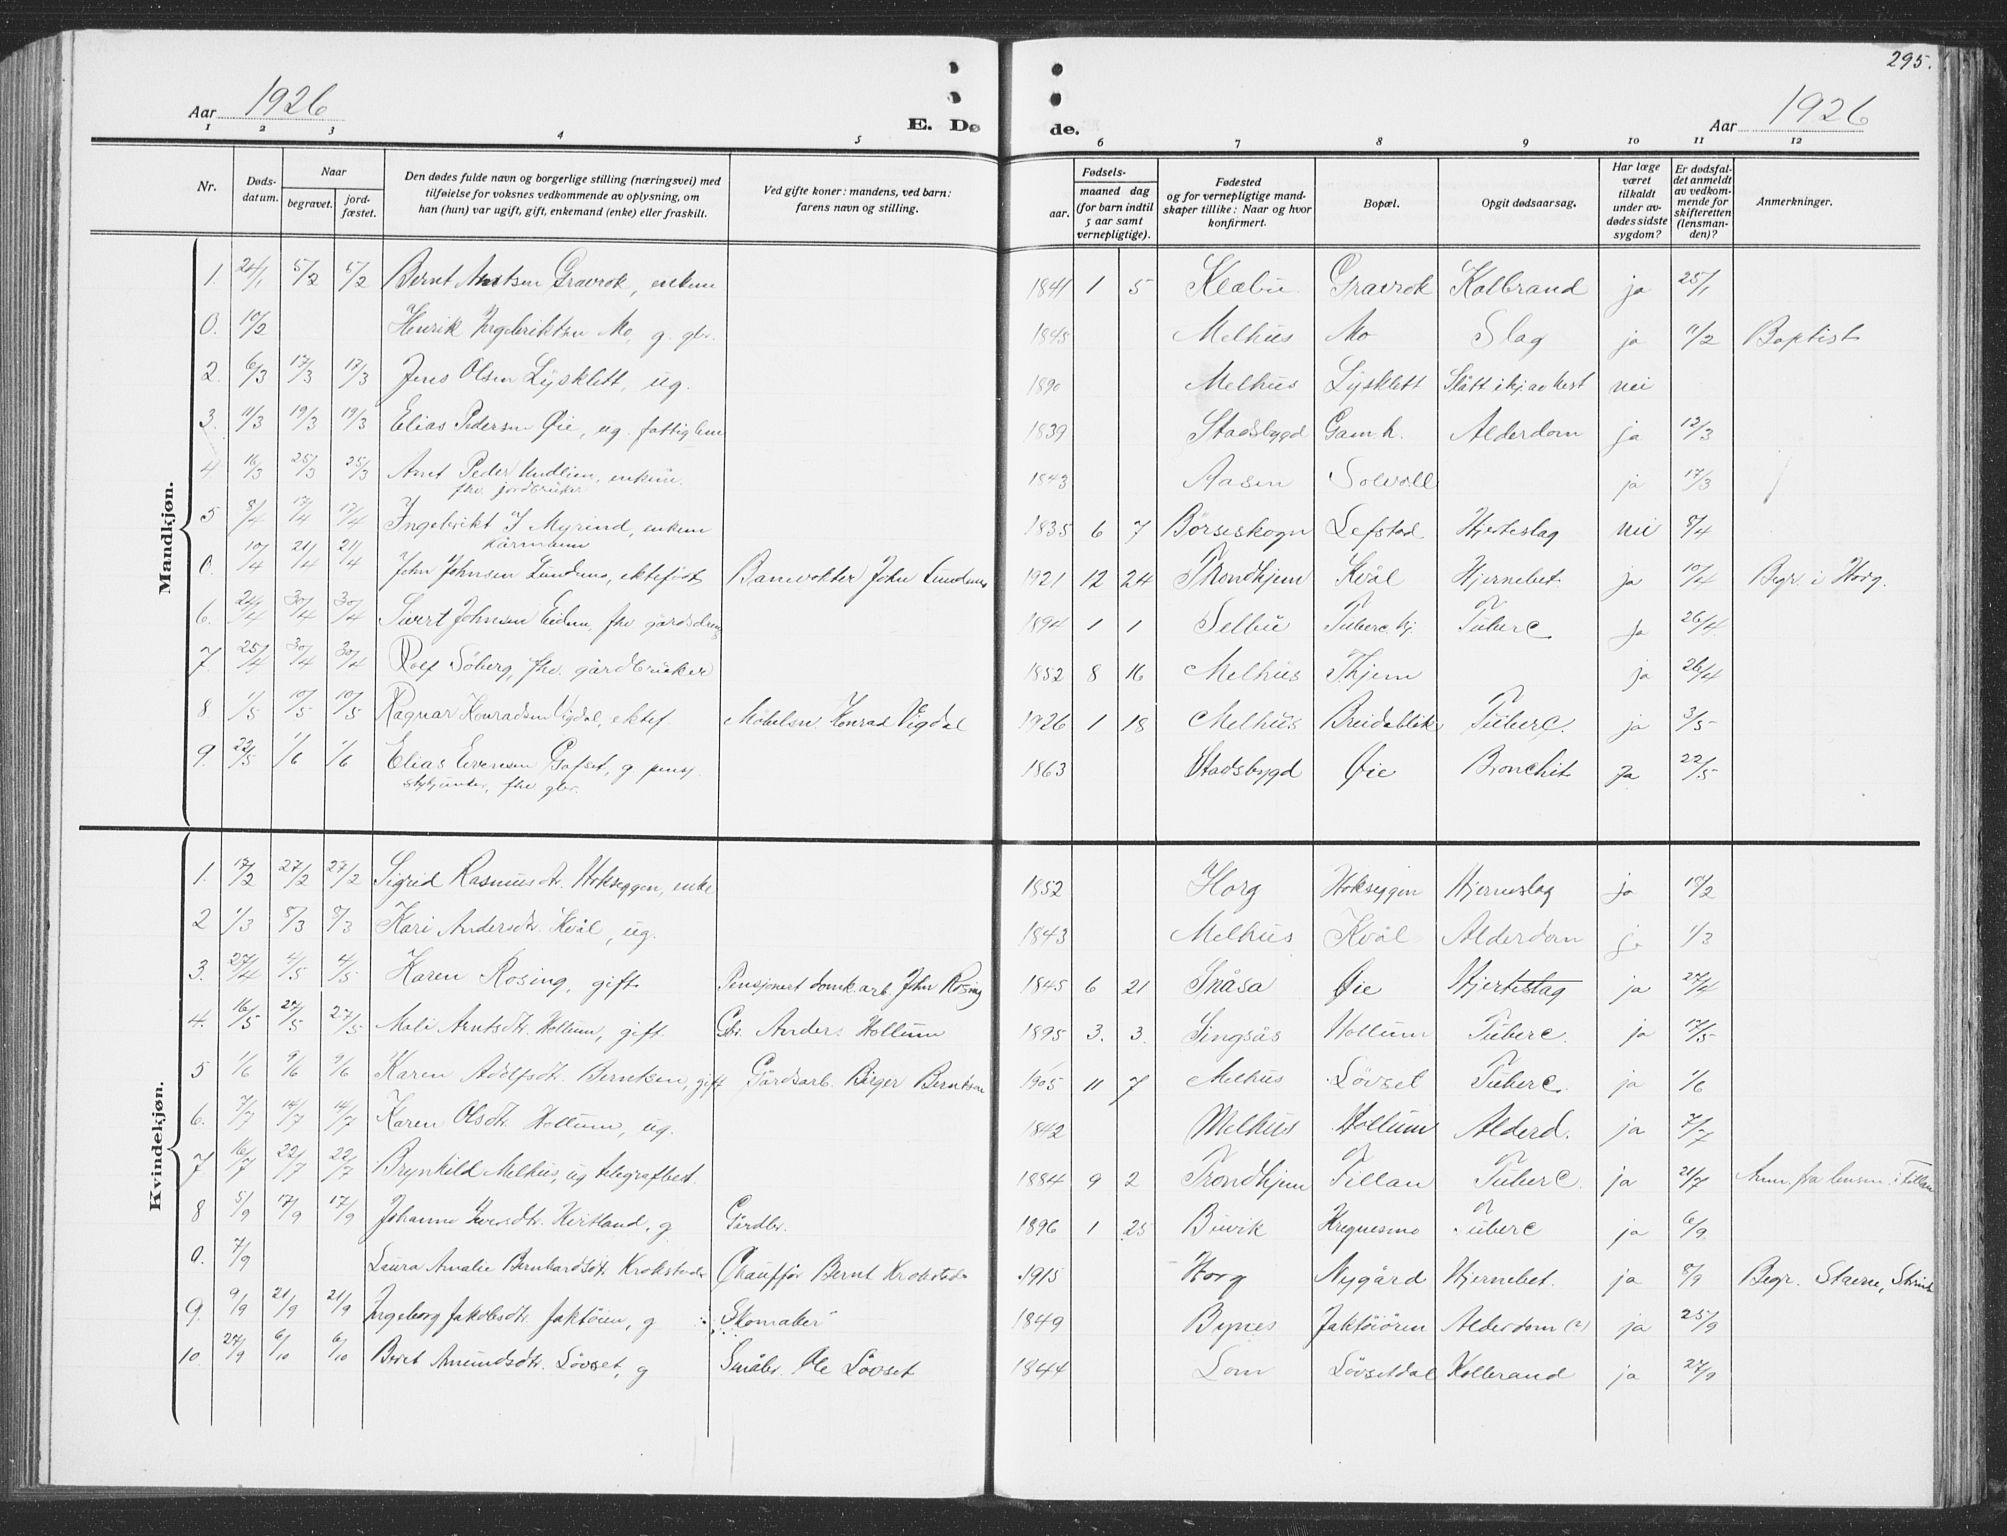 295.
Aar 1926
E. Dø de.
Aar 1926
1 2 3 4 5 6 7 8 9 10 11 12
Nr.
Døds-datum.
Naar
begravet.
jord-fæstet.
Den dødes fulde navn og borgerlige stilling (næringsvei) med
tilføielse for voksnes vedkommende av oplysning, om
han (hun) var ugift, gift, enkemand (enke) eller fraskilt.
Ved gifte koner: mandens, ved barn:
farens navn og stilling.
Fødsels-
aar.
maaned dag
(for barn indtil
5 aar samt
vernepligtige).
Fødested
og for vernepligtige mand-
skaper tillike: Naar og hvor
konfirmert.
Bopæl.
Opgit dødsaarsag.
Har læge
været
tilkaldt
under av-
dødes sidste
sygdom?
Er dødsfal-
det anmeldt
av vedkom-
mende for
skifteretten
(lensman-
den)?
Anmerkninger.
Mandkjøn.
1. 24/1 5/2 5/2 Bernt Arntsen Gravrok, enkem 1841 1 5 Klæbu Gravrok Kolbrand ja 25/1
0. 10/2 Henrik Ingebriktsen Mo, g. gbr. 1845 Melhus Mo Slag ja 11/2 Baptist
2. 6/3 17/3 17/3 Jens Olsen Lysklett, ug. 1890 Melhus Lysklett Slått ihj. av hest nei
3. 11/3 19/3 19/3 Elias Pedersen Øie, ug. fattiglem 1839 Stadsbygd Gam.h. Alderdom ja 12/3
4. 16/3 25/3 25/3 Arnt Peder Hudlien, enkem. 1843 Aasen Solvoll ja 17/3
fhv. jordbruker
5 8/4 17/4 17/4 Ingebrikt J Myrind, enkem 1835 6 7 Børseskogn Lefstad Hjerteslag nei 8/4
kårmann
0. 10/4 21/4 21/4 John Johnsen Lundemo, ektefødt Banevokter John Lundemo 1921 12 24 Trondhjem Kvål Hjernebet. ja 10/4 Begr. i Horg.
6. 24/4 30/4 30/4 Sivert Johnsen Eidem, fhv gårdsdreng 1894 1 1 Selbu Tuberc.hj. Tuberc ja 26/4
7 25/4 30/4 30/4 Rolf Söberg, fhv. gårdbruker 1852 8 16 Melhus Thjem ja 26/4
8 1/5 10/5 10/5 Ragnar Konradsen Vigdal, ektef. Möbelsn. Konrad Vigdal 1926 1 18 Melhus Breidablik Tuberc. ja 3/5
9. 22/5 1/6 1/6 Elias Evensen Gafset, g pens. 1863 Stadsbygd Øie Bronchit ja 22/5
stykjunker, fhv gbr.
Kvindekjøn.
1. 17/2 27/2 27/2 Sigrid Rasmusdtr. Hokseggen, enke 1852 Horg Hokseggen Hjerneslag ja 18/2
2 1/3 8/3 8/3 Kari Andersdtr. Kvål, ug. 1843 Melhus Kvål Alderdom ja 1/3
3. 27/4 4/5 4/5 Karen Rosing, gift Pensjonert domk.arb. John Rosing 1845 6 21 Snåsa Øie Hjerteslag ja 27/4
4. 16/5 27/5 27/5 Mali Arntsdtr. Hollum, gift. Gbr. Anders Hollum 1895 3. 3. Singsås Hollum Tuberc. ja 17/5
5 1/6 9/6 9/6 Karen Adolfsdtr. Berntsen, gift Gårdsarb. Birger Berntsen 1905 11 7 Melhus Lövset Tuberc. ja 1/6
6. 7/7 14/7 14/7 Karen Olsdtr. Hollum, ug. 1842 Melhus Hollum Alderd. ja 7/7
7 16/7 22/7 22/7 Brynhild Melhus, ug telegrafbest. 1884 9 2 Trondhjem Tillan Tuberc. ja 21/7 Anm. fra lensm. i Tillan
8 5/9 17/9 17/9 Johanna Iversdtr. Kirtland, g Gårdbr. 1896 1 25 Buvik Kregnesmo Tuberc ja 6/9
0. 7/9 Laura Amalie Bernhardsdtr. Krokstad Chauffør Bernt Krokstad 1915 Horg Nygård Hjernebet. ja 8/9 Begr. Stavne, Strind
9. 9/9 21/9 21/9 Ingeborg Jakobsdtr. Jaktöien, g Skomaker 1849 Bynes Jaktöiören Alderdom (?) ja 25/9
10. 27/9 6/10 6/10 Beret Amundsdtr. Lövset, g Småbr. Ole Lövset 1844 Lom Lövsetdal Kolbrand ja 27/9